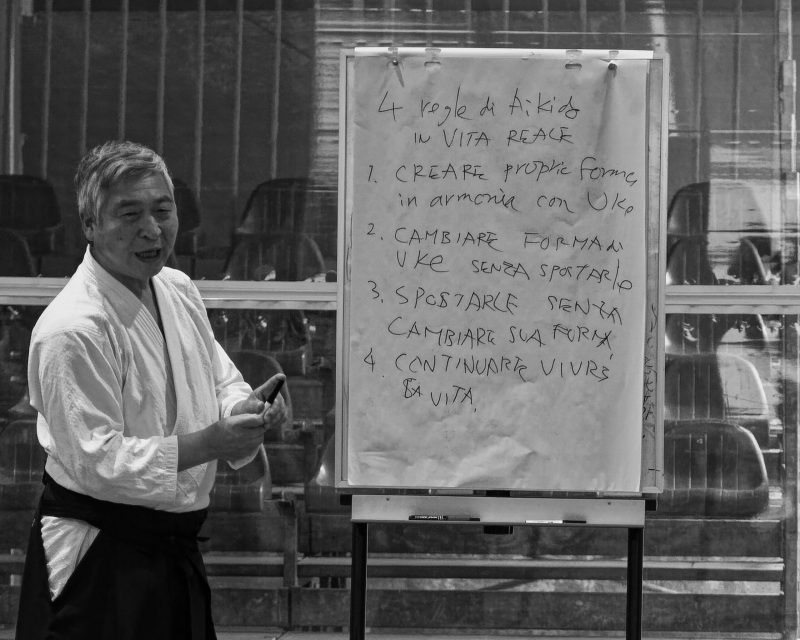 4 regle di Aikido
IN VITA REALE
1. CREARE propria forma
in armonia con Uke
2. CAMBIARE FORMA di
UKE SENZA SPOSTARLO
3. SPOSTARLE SENZA
CAMBIARE SUA FORMA
4. CONTINUARE VIVRE
LA VITA.